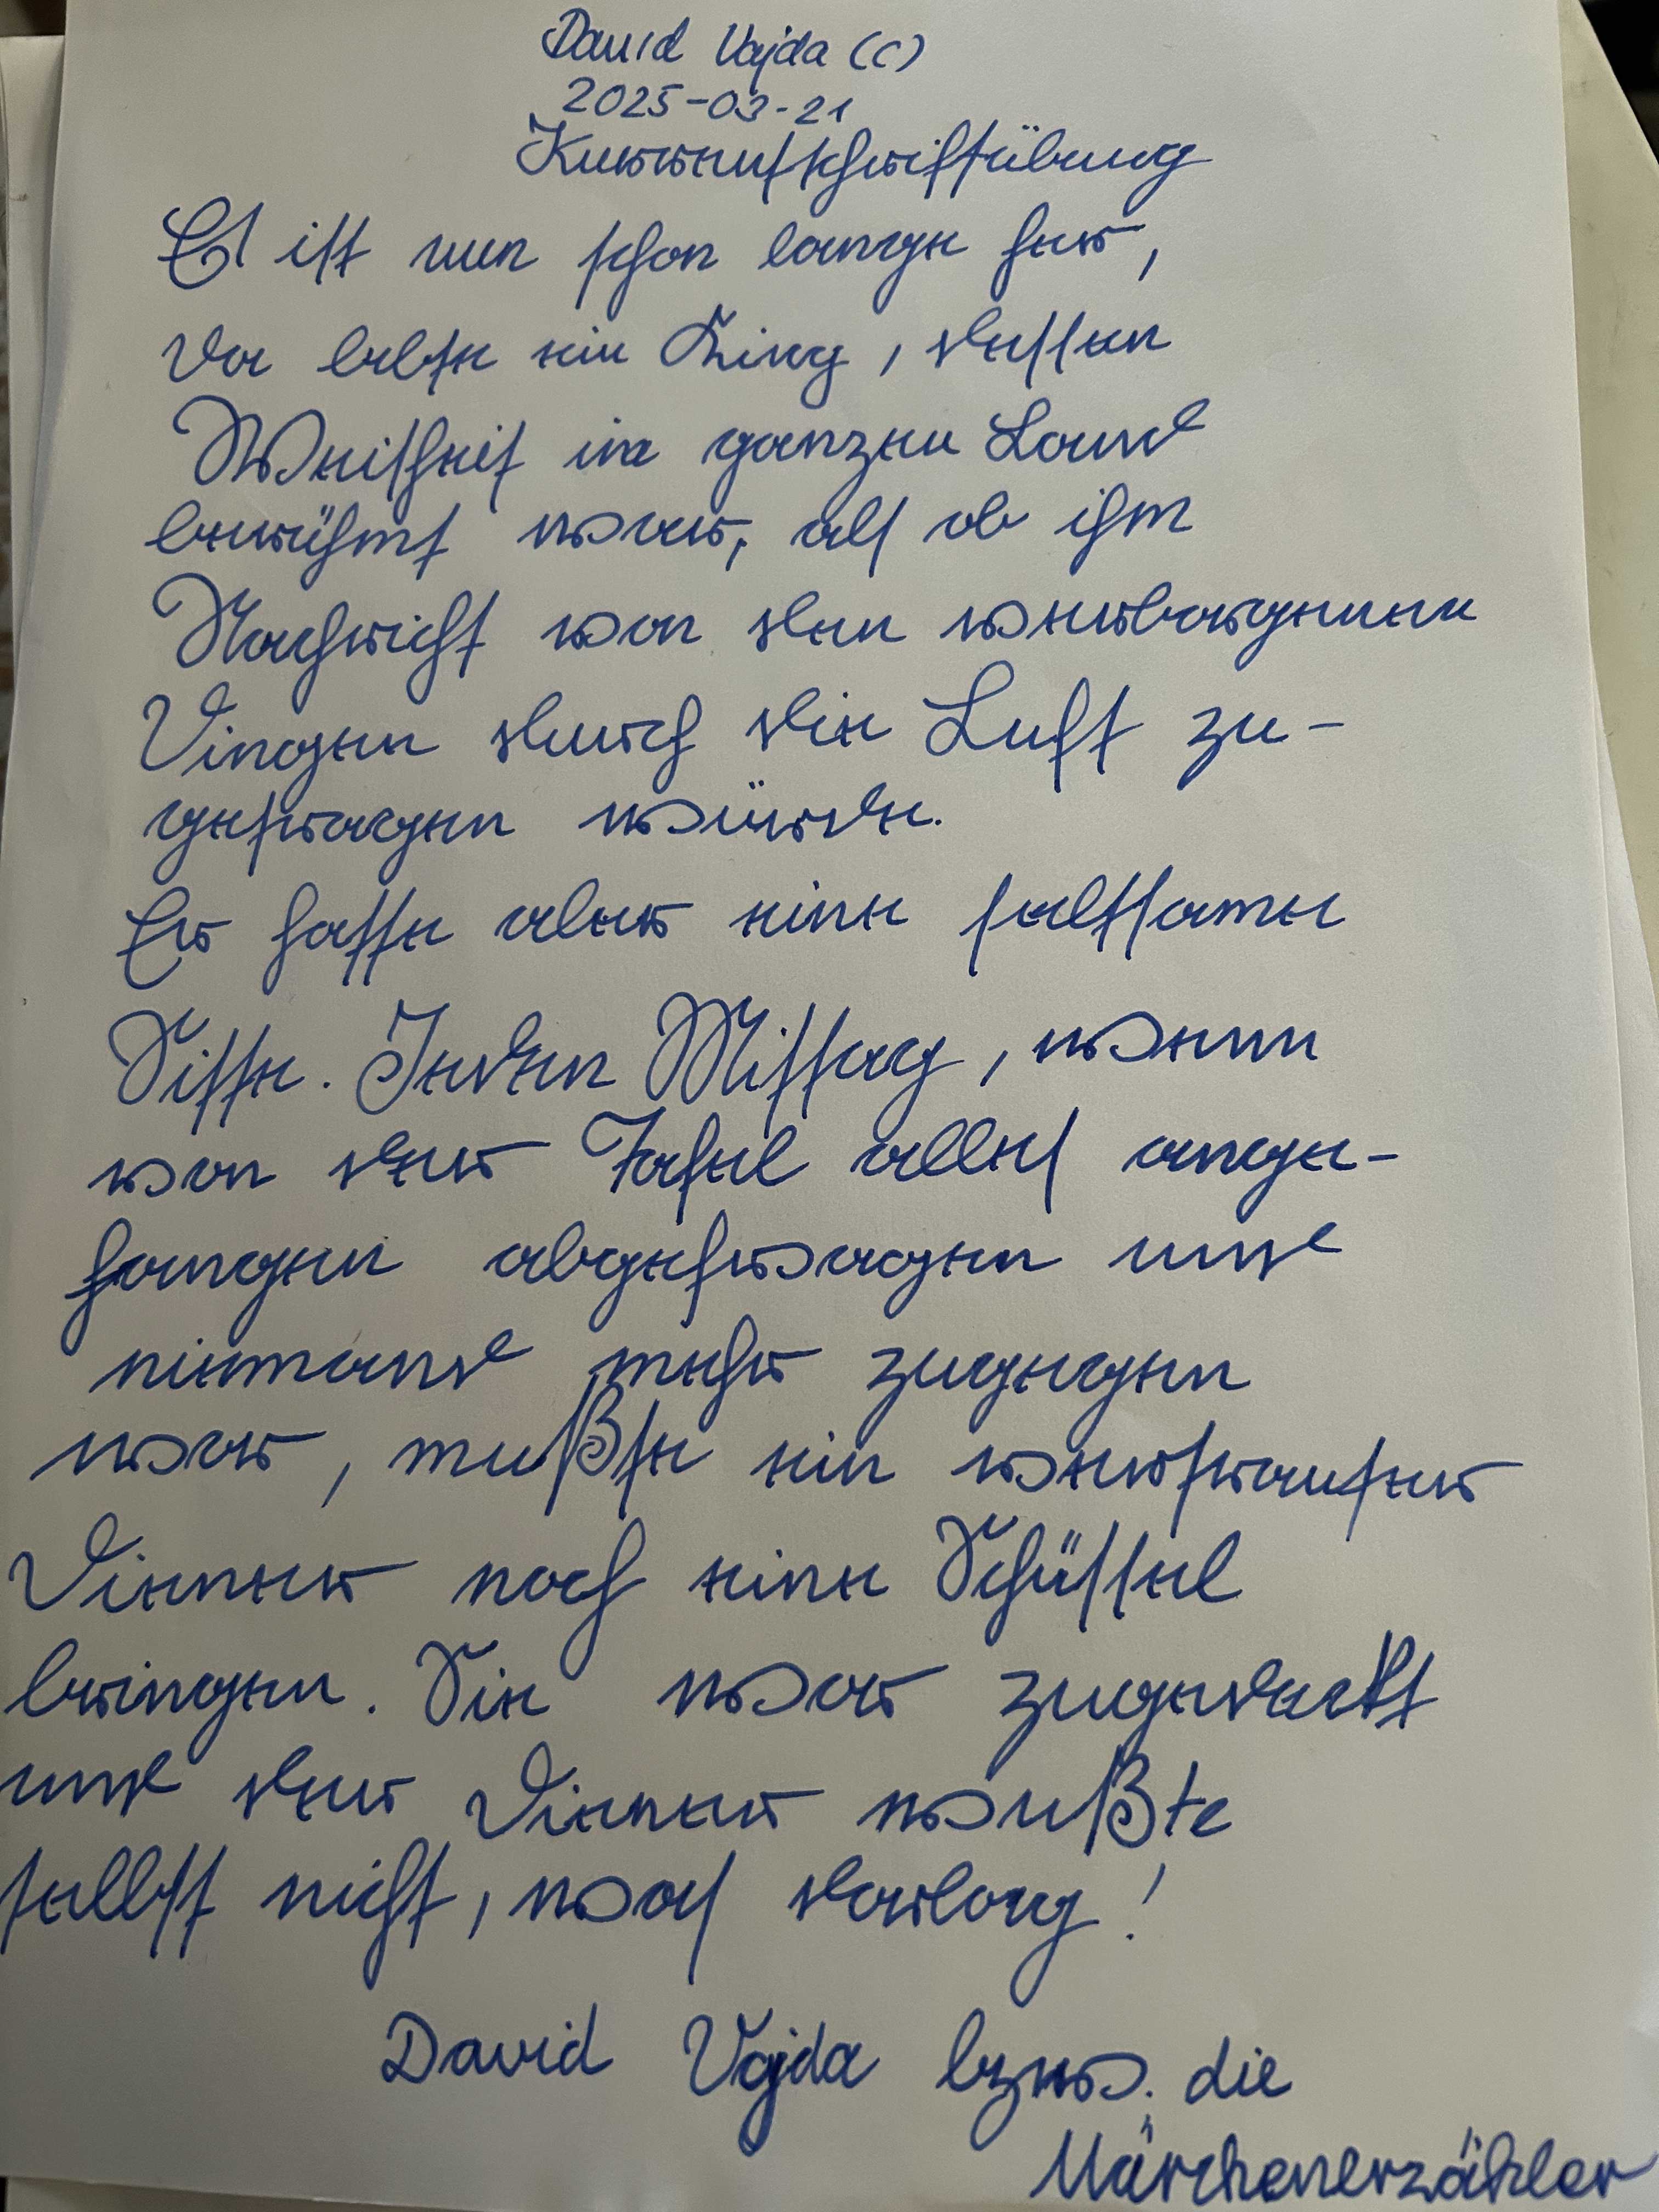 David Vajda (C)
2025-03-21
Kurrentschriftübung
Es ist nun schon lange her,
da lebte ein König, dessen
Weisheit im ganzen Land
berühmt war, als ob ihm
Nachricht von den verborgenen
Dingen durch die Luft zu-
getragen würde.
Er hatte aber eine seltsame
Sitte. Jeden Mittag, wenn
von der Tafel alles ange-
hangen abgetragen und
niemand mehr zugegen
war, mußte ein vertrauter
Diener noch eine Schüssel
bringen. Sie war zugedeckt
und der Diener wußte
selbst nicht, was darlag!
David Vajda bzw. die
Märchenerzähler